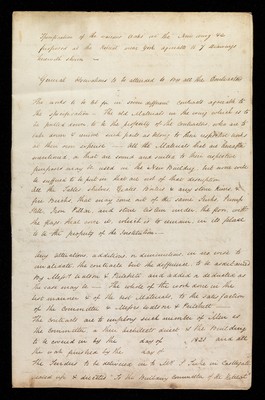 Specification of the various works at the New wing &c
proposed at the Retreat near York agreeable to 7 drawings
herewith shewn —
General Conditions to be attended to by all the Contractors
The works to be let in seven different contracts agreeable to
the specification — The old Materials in the wing which is to
be pulled down to be the property of the contractors, who are to
take down & such part as belong to their respective works
at their own expence — All the Materials that are hereafter
mentioned or that are sound and suited to their respective
purposes may be used in the New Building, but none will
be suffered to be put in that are not of that description
All the Tables shelves Sinks and any stone
fire Bricks that may come out of the same Sinks Pump
Iron Pillar and stone bottom under the
the place that now is, which is to remain in its place
to be the property of the Institution —
Any alterations additions or diminutions in no wise to
invalidate the contracts but the difference to be ascertained
By Messrs Watson & Pritchett and added or deducted as
the case may be — The whole of the work done in the
best manner & of the best Materials, to the satisfaction
of the Committee & Messrs Watson & Pritchett —
The contractors are to employ such number of Men as
the Committee or their Architects direct & the Building
to be covered in by the day of 1823 and all
the work finished by the day of
The Tenders to be delivered in to Mr in Castlegate
sealed up & directed "To the Building Committee of the Retreat"